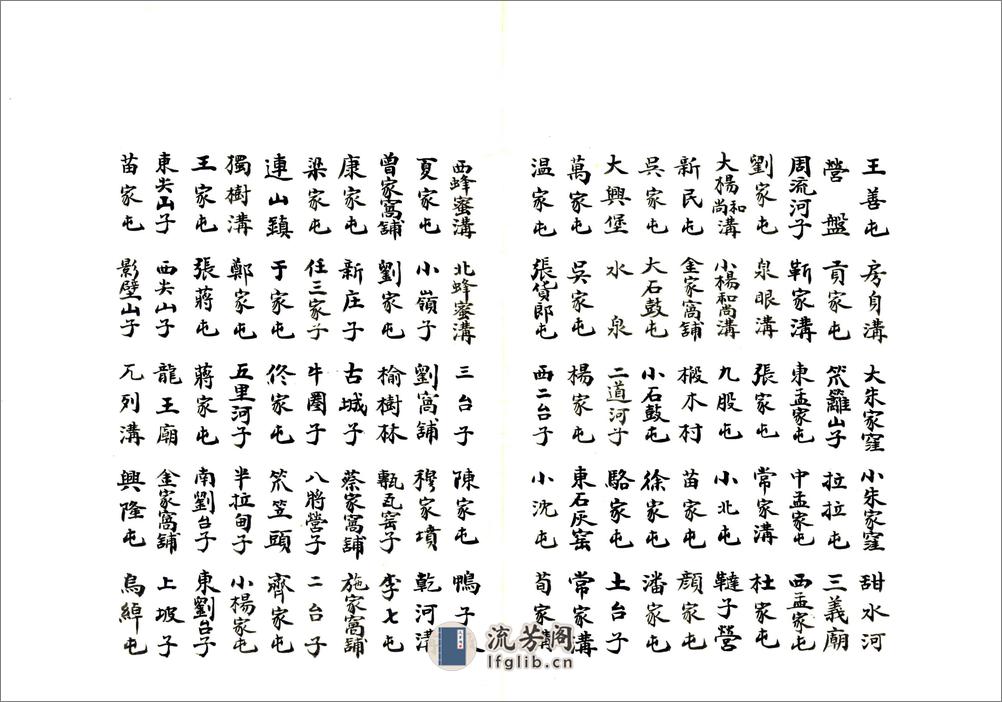 王善屯 房身溝 大朱家窪 小朱家窪 甜水河
營盤 貢家屯 笊籬山子 拉拉屯 三義廟
周流河子 靳家溝 東孟家屯 中孟家屯 西孟家屯
劉家屯 泉眼溝 張家屯 常家溝 杜家屯
大楊和尚溝 小楊和尚溝 九股屯 小北屯 韃子營
新民屯 金家窩舖 椴木村 苗家屯 顏家屯
吳家屯 大石鼓屯 小石鼓屯 徐家屯 潘家屯
大興堡 水泉 二道河子 駱家屯 土台子
萬家屯 吳家屯 楊家屯 東石灰窑 常家溝
温家屯 張貨郎屯 西二台子 小沈屯 荀家溝
西蜂蜜溝 北蜂蜜溝 三台子 陳家屯 鴨子
夏家屯 小嶺子 劉窩舖 穆家墳 乾河溝
曾家窩舖 劉家屯 榆樹林 甎瓦窑子 李七屯
康家屯 新庄子 古城子 蔡家窩舖 施家窩舖
梁家屯 任三家子 牛圈子 八將營子 二台子
連山鎮 于家屯 佟家屯 笊笠頭 齊家屯
獨樹溝 鄭家屯 五里河子 半拉甸子 小楊家屯
王家屯 張蔣屯 蔣家屯 南劉台子 東劉台子
東尖山子 西尖山子 龍王廟 金家窩舖 上坡子
苗家屯 影壁山子 兀列溝 興隆屯 烏綽屯
流芳阁
lfglib.cn